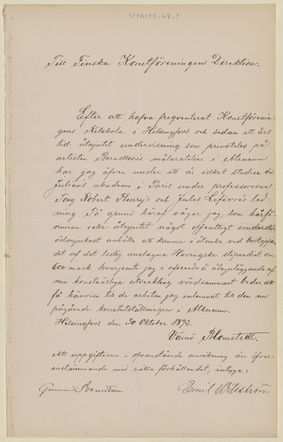 Till Finska Konstföreningens Direktion.
Efter att hafva frequenterat Konstförenin-
gens Ritskola i Helsingfors och sedan ett års
tid åtnjutit undervisning som privatelev på
artisten Berndtsons målarateliér i Ateneum
har jag äfven under ett år idkat studier vid
Julians akademi i Paris under professorerne
Tony Robert Fleury's och Jules Lefèvres led-
ning. På grund häraf vågar jag, som härtill-
ömman icke åtnjutit något offentligt understöd
ödmjukast anhålla att komma i åtanke vid
det af det ledig anslagna Hovingska stipendiet om
600 mark hvarjemte jag i afseende å ådagaläggande af
min konstnärliga utveckling vördsammast beder att
få hänvisa till de arbeten jag inlemnat till den nu
pågående konstutställningen i Ateneum.
Helsingfors den 30 Oktober 1892.
Väinö Blomstedt.
Att uppgifterna i ofvanstående ansökning äro öfver-
ensstämmande med rätta förhållandet, intyga:
Gunnar Berndtson Emil Wikström